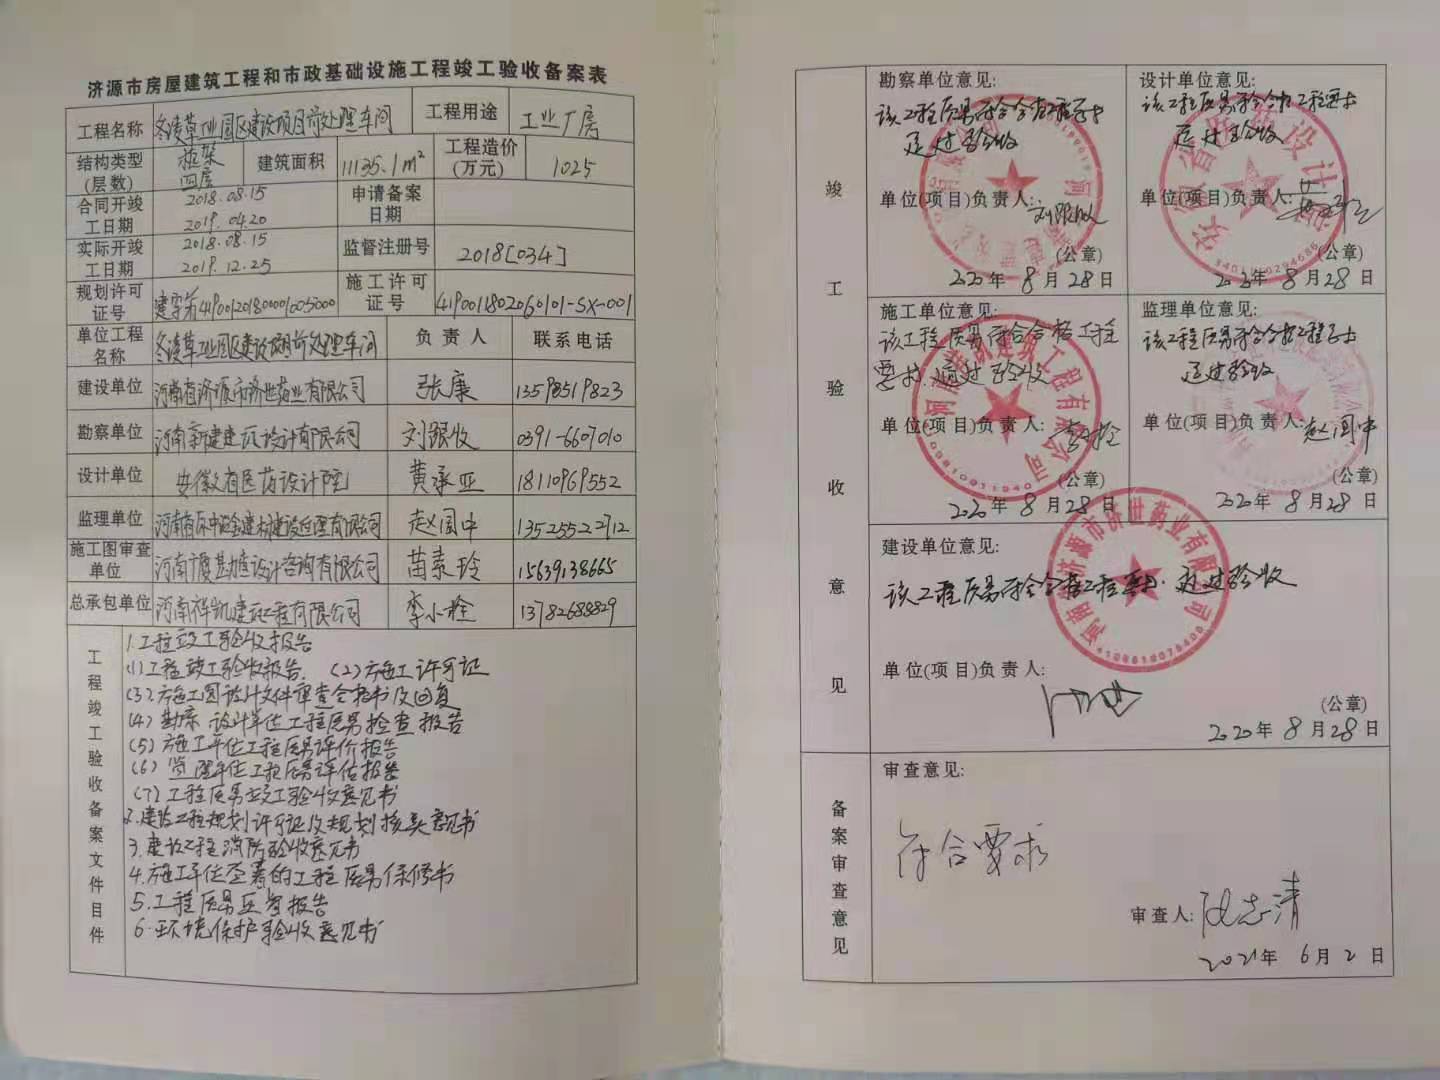 济源市房屋建筑工程和市政基础设施工程竣工验收备案表
工程名称 冬凌草工业园区建设项目前处理车间 工程用途 工业厂房
结构类型(层数) 框架 四层 建筑面积 11135.1m² 工程造价(万元) 1025
合同开竣工日期 2018.08.15 2019.04.20 申请备案日期
实际开竣工日期 2018.08.15 2019.12.25 监督注册号 2018[034]
规划许可证号 建字第419001201800001005000 施工许可证号 4190011802060101-SX-001
单位工程名称 冬凌草工业园区建设项目前处理车间 负责人 联系电话
建设单位 河南省济源市济世药业有限公司 张康 13598519823
勘察单位 河南新建建设设计有限公司 刘银收 0391-6607010
设计单位 安徽省医药设计院 黄承亚 18110969552
监理单位 赵国中 13525522712
施工图审查单位 河南广厦勘查设计咨询有限公司 苗素玲 15639138665
总承包单位 河南祥凯建筑工程有限公司 李小栓 13782688829
工程竣工验收备案文件目件
1.工程竣工验收报告
(1)工程竣工验收报告. (2)施工许可证
(3)施工图设计文件审查合格书及回复
(4)勘察、设计单位工程质量检查报告
(5)施工单位工程质量评价报告
(6)监理单位工程质量评估报告
(7)工程质量竣工验收意见书
2.建设工程规划许可证及规划核实意见书
3.建设工程消防验收意见书
4.施工单位签署的工程质量保修书
5.工程质量监督报告
6.环境保护验收意见书
竣工验收意见
勘察单位意见:
该工程质量符合合格工程要求
通过验收
单位(项目)负责人: 刘银收
(公章)
2020年8月28日
设计单位意见:
该工程质量符合合格工程要求
通过验收
单位(项目)负责人:
(公章)
2020年8月28日
安徽省医药设计院
3401110294686
施工单位意见:
该工程质量符合合格工程
要求,通过验收
单位(项目)负责人: 李小栓
(公章)
2020年8月28日
河南祥凯建筑工程有限公司
监理单位意见:
该工程质量符合合格工程要求
通过验收
单位(项目)负责人: 赵国中
(公章)
2020年8月28日
建设单位意见:
该工程质量符合合格工程要求.通过验收
单位(项目)负责人:
(公章)
2020年8月28日
河南省济源市济世药业有限公司
备案审查意见
审查意见:
符合要求
审查人:
2021年6月2日